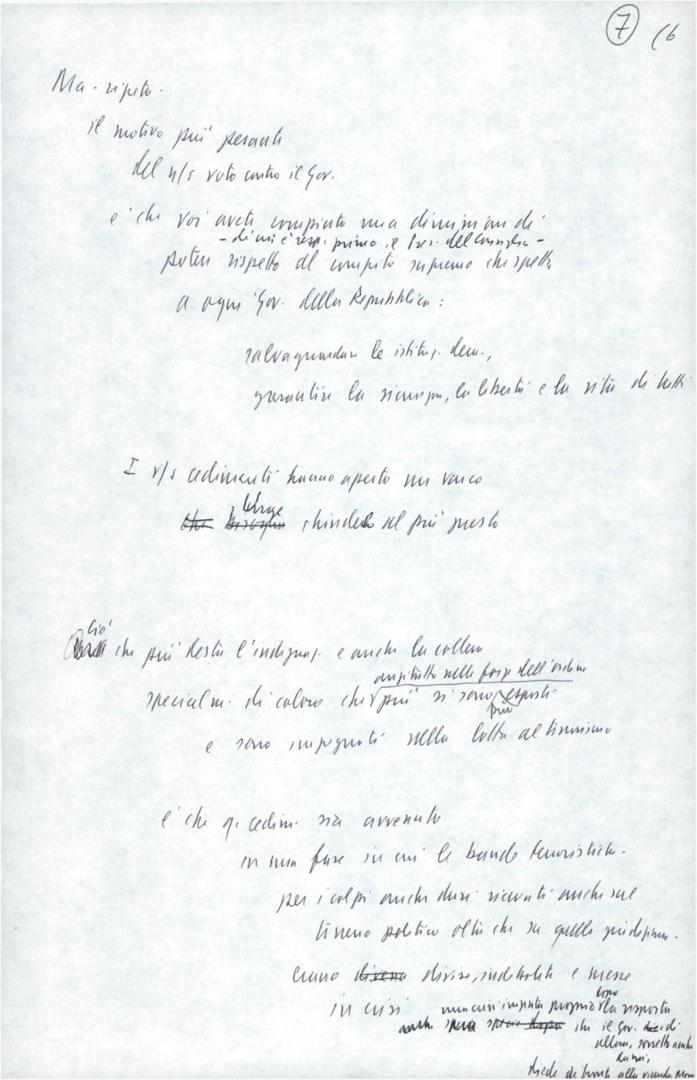 7 16
Ma - ripeto -
il motivo più pesante
del n/s voto contro il Gov.
è che voi avete compiuto una dimission. di
- di cui è resp. primo il Pres. del Consiglio -
poteri rispetto al compito supremo che spetta
a ogni Gov. della Repubblica:
salvaguardare le istituz. dem.,
garantire la sicurezza, la libertà e la vita di tutti
I v/s cedimenti hanno aperto un varco
Urge
che bisogna chiudere al più presto
Ciò
che più desta l'indignaz. e anche la collera
anzitutto nelle forze dell'ordine
specialm. di coloro che più si sono esposti
più
e sono impegnati nella lotta al terrorismo
è che q. cedim. sia avvenuto
in una fase in cui le bande terroristiche -
per i colpi anche duri ricevuti anche sul
terreno politico oltre che su quello
erano divise, indebolite e messe
in crisi
dopo
una crisi proprio la risposta
che il Gov. di
allora, sorretto anche
da noi,
diede di fronte alla vicenda Moro